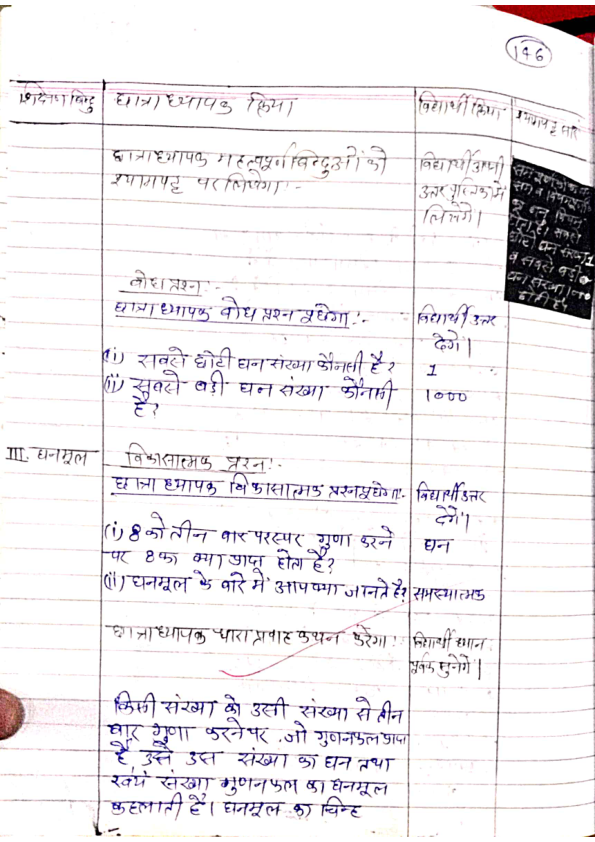 146
शिक्षण बिन्दु
छात्राध्यापक क्रिया
विद्यार्थी क्रिया
श्यामपट्ट सार
छात्राध्यापक महत्वपूर्ण बिन्दुओं को
श्यामपट्ट पर लिखेगा :-
विद्यार्थी अपनी
उत्तर पुस्तिका में
लिखेंगे।
बोध प्रश्न :-
छात्राध्यापक बोध प्रश्न पूछेगा :-
विद्यार्थी उत्तर
देंगे।
(i) सबसे छोटी घन संख्या कौनसी है?
1
(ii) सबसे बड़ी घन संख्या कौनसी
है?
1000
III. घनमूल
विकासात्मक प्रश्न :-
छात्राध्यापक विकासात्मक प्रश्न पूछेगा :-
विद्यार्थी उत्तर
देंगे।
(i) 8 को तीन बार परस्पर गुणा करने
पर 8 का क्या प्राप्त होता है?
घन
(ii) घनमूल के बारे में आप क्या जानते है?
समस्यात्मक
छात्राध्यापक धारा प्रवाह कथन करेगा :-
विद्यार्थी ध्यान
पूर्वक सुनेंगे।
किसी संख्या को उसी संख्या से तीन
बार गुणा करने पर जो गुणनफल प्राप्त
है, उसे उस संख्या का घन तथा
स्वयं संख्या गुणनफल का घनमूल
कहलाती है। घनमूल का चिन्ह